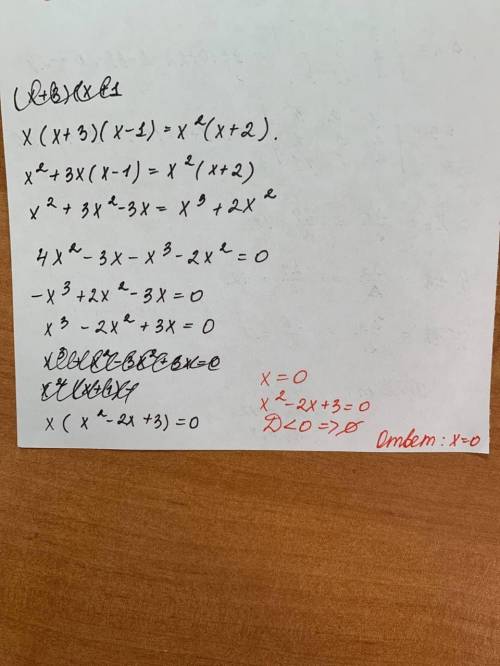 x(x+3)(x-1)=x²(x+2).
x²+3x(x-1)=x²(x+2)
x²+3x²-3x=x³+2x²
4x²-3x-x³-2x²=0
-x³+2x²-3x=0
x³-2x²+3x=0
x(x²-2x+3)=0
x=0
x²-2x+3=0
D<0=>∅
Ответ: x=0